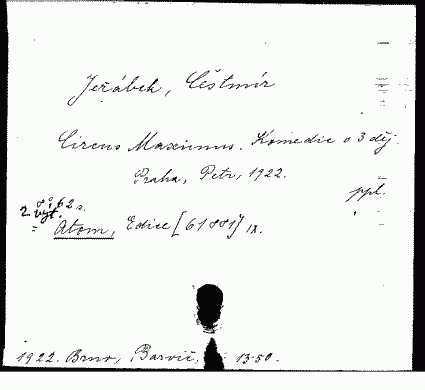 Jeřábek, Čestmír
Circus Maximus. Komedie o 3 děj.
Praha, Petr, 1922.
ppl.
8°, 62 s.
2. výt.
= Atom, Edice [61881] IX.
1922. Brno, Barvič, 13·50.